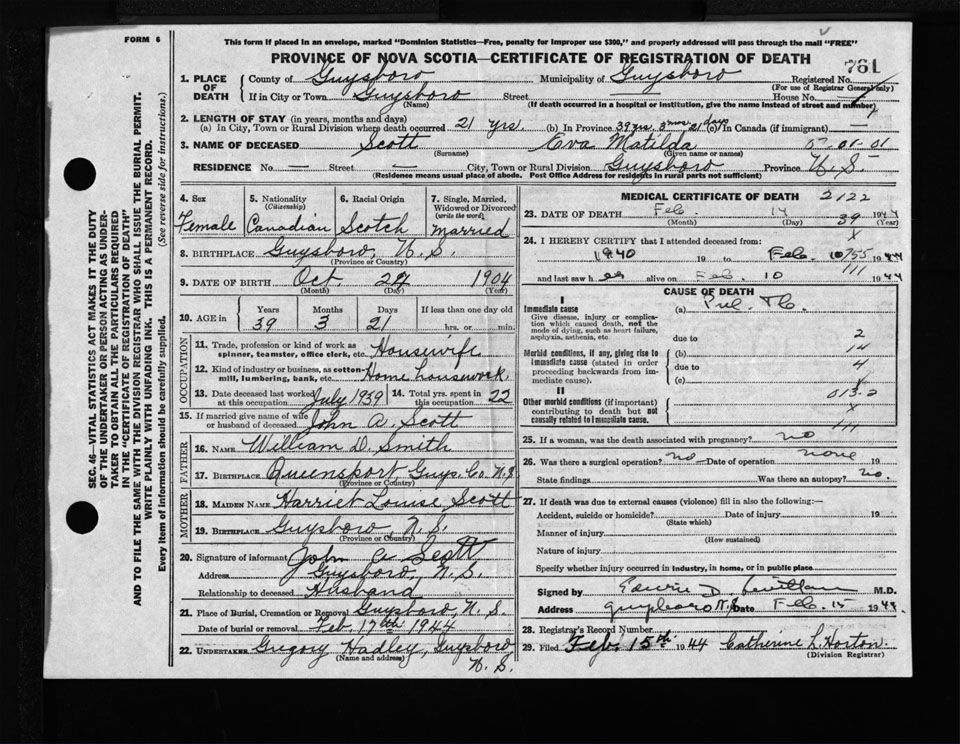 FORM 6
This form if placed in an envelope, marked "Dominion Statistics—Free, penalty for improper use $300," and properly addressed will pass through the mail "FREE"
PROVINCE OF NOVA SCOTIA—CERTIFICATE OF REGISTRATION OF DEATH
761
1. PLACE OF DEATH County of Guysboro Municipality of Guysboro Registered No.
(For use of Registrar General only)
If in City or Town Guysboro Street House No.
(Name) (If death occurred in a hospital or institution, give the name instead of street and number)
2. LENGTH OF STAY (in years, months and days)
(a) In City, Town or Rural Division where death occurred 21 yrs. (b) In Province 39 yrs. 3 mos. 21 days (c) In Canada (if immigrant)
3. NAME OF DECEASED Scott Eva Matilda
(Surname) (Given name or names)
RESIDENCE No. — Street — City, Town or Rural Division Guysboro Province N.S.
(Residence means usual place of abode. Post Office Address for residents in rural parts not sufficient)
4. Sex Female
5. Nationality (Citizenship) Canadian
6. Racial Origin Scotch
7. Single, Married, Widowed or Divorced (write the word) Married
8. BIRTHPLACE Guysboro, N.S.
(Province or Country)
9. DATE OF BIRTH Oct. 24 1904
(Month) (Day) (Year)
10. AGE in Years 39 Months 3 Days 21 If less than one day old hrs. or min.
OCCUPATION
11. Trade, profession or kind of work as spinner, teamster, office clerk, etc. Housewife
12. Kind of industry or business, as cotton-mill, lumbering, bank, etc. Home housework
13. Date deceased last worked at this occupation July 1939 14. Total yrs. spent in this occupation 22
15. If married give name of wife or husband of deceased John A. Scott
FATHER
16. NAME William D. Smith
17. BIRTHPLACE Queensport, Guys. Co. N.S.
(Province or Country)
MOTHER
18. MAIDEN NAME Harriet Louise Scott
19. BIRTHPLACE Guysboro, N.S.
(Province or Country)
20. Signature of informant John A Scott
Address Guysboro, N.S.
Relationship to deceased Husband
21. Place of Burial, Cremation or Removal Guysboro, N.S.
Date of burial or removal Feb. 17th 1944
22. UNDERTAKER Gregory Hadley, Guysboro, N.S.
(Name and address)
MEDICAL CERTIFICATE OF DEATH 2122
23. DATE OF DEATH Feb. 14 39 1944
(Month) (Day) (Year)
24. I HEREBY CERTIFY that I attended deceased from:
1940 19 to Feb. 10 1944
and last saw h er alive on Feb. 10 1944
CAUSE OF DEATH
I
Immediate cause (a) Pul. Tb.
Give disease, injury or complication which caused death, not the mode of dying, such as heart failure, asphyxia, asthenia, etc
due to 2
Morbid conditions, if any, giving rise to immediate cause (stated in order proceeding backwards from immediate cause). (b) 14
due to 4
(c)
II
Other morbid conditions (if important) contributing to death but not causally related to immediate cause.
013.2
X
111
25. If a woman, was the death associated with pregnancy? no
26. Was there a surgical operation? no Date of operation none 19
State findings Was there an autopsy? no.
27. If death was due to external causes (violence) fill in also the following:—
Accident, suicide or homicide? Date of injury 19
(State which)
Manner of injury
(How sustained)
Nature of injury
Specify whether injury occurred in industry, in home, or in public place
Signed by M.D.
Address Guysboro N.S. Date Feb. 15 1944.
28. Registrar's Record Number
29. Filed Feb. 15th 1944 Catherine L. Horton
(Division Registrar)
SEC. 46—VITAL STATISTICS ACT MAKES IT THE DUTY
OF THE UNDERTAKER OR PERSON ACTING AS UNDER-
TAKER TO OBTAIN ALL THE PARTICULARS REQUIRED
IN THE "CERTIFICATE OF REGISTRATION OF DEATH"
AND TO FILE THE SAME WITH THE DIVISION REGISTRAR WHO SHALL ISSUE THE BURIAL PERMIT.
WRITE PLAINLY WITH UNFADING INK. THIS IS A PERMANENT RECORD.
Every item of information should be carefully supplied. (See reverse side for instructions.)